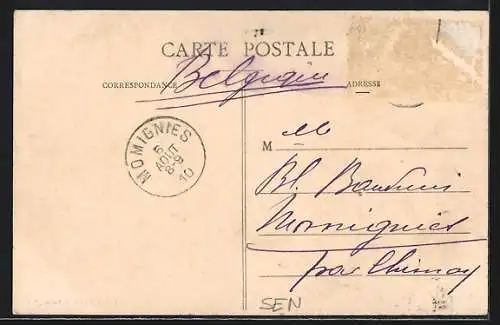 CARTE POSTALE
Belgique
CORRESPONDANCE
ADRESSE
MOMIGNIES
5
AOUT
8-9
10
M
Momignies
par Chimay
SEN